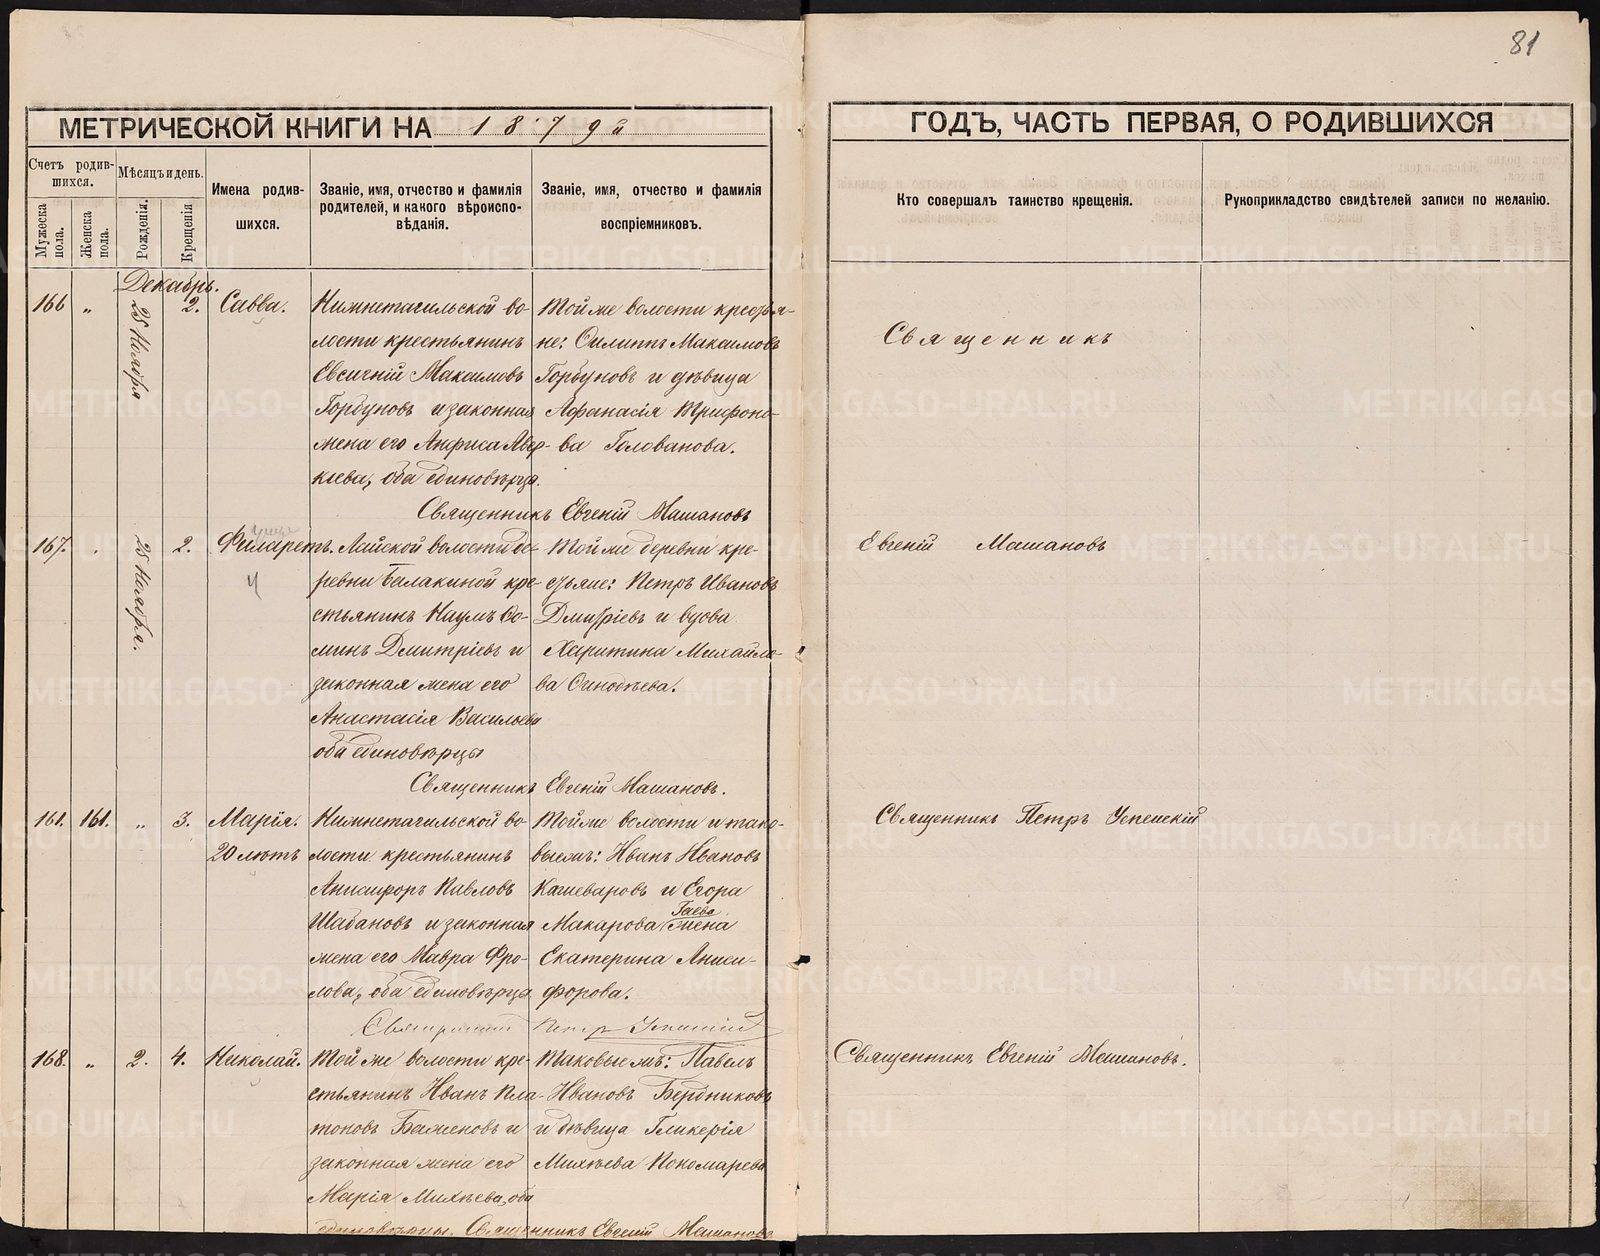 81
МЕТРИЧЕСКОЙ КНИГИ НА 1879й
ГОДЪ, ЧАСТЬ ПЕРВАЯ, О РОДИВШИХСЯ
Счетъ родив-
шихся.
Мужеска пола.
Женска пола.
Мѣсяцъ и день.
Рожденія.
Крещенія
Имена родив-
шихся.
Званіе, имя, отчество и фамилія
родителей, и какого вѣроиспо-
вѣданія.
Званіе, имя, отчество и фамилія
воспріемниковъ.
Кто совершалъ таинство крещенія.
Рукоприкладство свидѣтелей записи по желанію.
Декабрь.
166 „ 25 Ноября 2. Савва.
Нижнетагильской во-
лости крестьянинъ
Евсигній Максимовъ
Горбуновъ и законная
жена его Анфиса Авер-
кіева, оба единовѣрца.
Той же волости крестья-
не: Филиппъ Максимовъ
Горбуновъ и дѣвица
Афанасія Трифоно-
ва Голованова.
Священникъ Евгеній Машановъ
Священникъ
167. 25 Ноября. 2. Филаретъ.
Лайской волости де-
ревни Балакиной кре-
стьянинъ Наумъ Фо-
минъ Дмитріевъ и
законная жена его
Анастасія Васильева
оба единовѣрцы
Той же деревни кре-
стьяне: Петръ Ивановъ
Дмитріевъ и вдова
Харитина Михайло-
ва
Священникъ Евгеній Машановъ.
Евгеній Машановъ
161. 161. „ 3. Марія.
20 лѣтъ
Нижнетагильской во-
лости крестьянинъ
Анисифоръ Павловъ
Шабановъ и законная
жена его Мавра Фро-
лова, оба единовѣрца
Той же волости и тако-
вые жъ: Иванъ Ивановъ
Кашеваровъ и Егора
Макарова Гаева жена
Екатерина Аниси-
форова.
Священникъ Петръ Успенскій
Священникъ Петръ Успенскій
168. „ 2. 4. Николай.
Той же волости кре-
стьянинъ Иванъ Пла-
тоновъ Баженовъ и
законная жена его
Марія Михѣева, оба
единовѣрцы.
Таковые жъ: Павелъ
Ивановъ Бердниковъ
и дѣвица Гликерія
Михѣева Пономарева
Священникъ Евгеній Машановъ
Священникъ Евгеній Машановъ.
METRIKI.GASO-URAL.RU